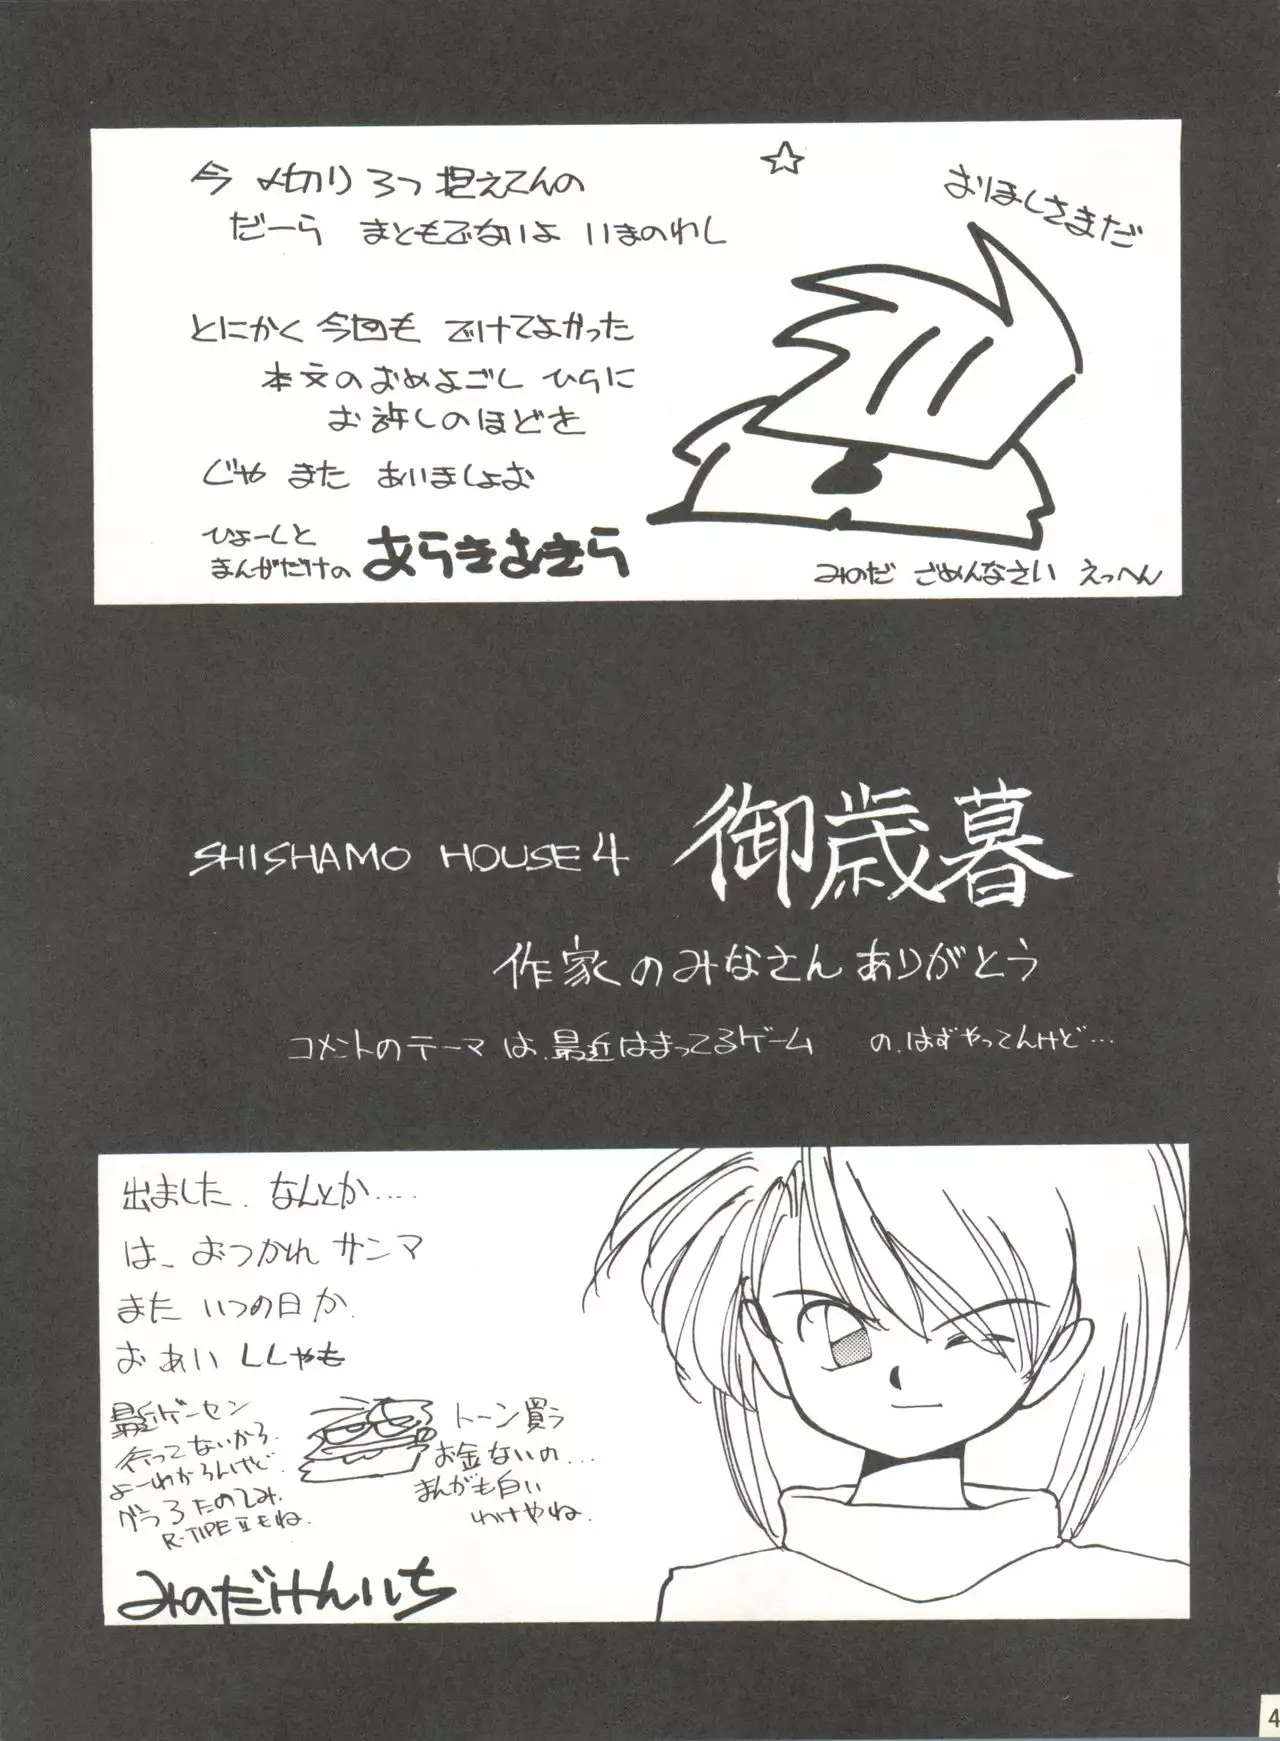 今 〆切り 3つ 抱えてんの
だーら まともでないよ いまのわし
とにかく 今回も でけてよかった
本文のおめよごし ひらに
お許しのほどを
じゃ また あいましょお
ひょーしと
まんがだけの あらきあきら
☆
おほしさまだ
みのだ ごめんなさい えっへん
SHISHAMO HOUSE 4 御歳暮
作家のみなさん ありがとう
コメントのテーマは、最近はまってるゲーム の、はずやってんけど…
出ました、なんとか….
は、おつかれサンマ
また いつの日か、
おあい ししゃも
最近ゲーセン
行ってないから、
よーわからんけど、
グラ3たのしみ、
R-TYPE Ⅱもね、
トーン買う
お金ないの…
まんがも白い
わけやね、
みのだけんいち
4